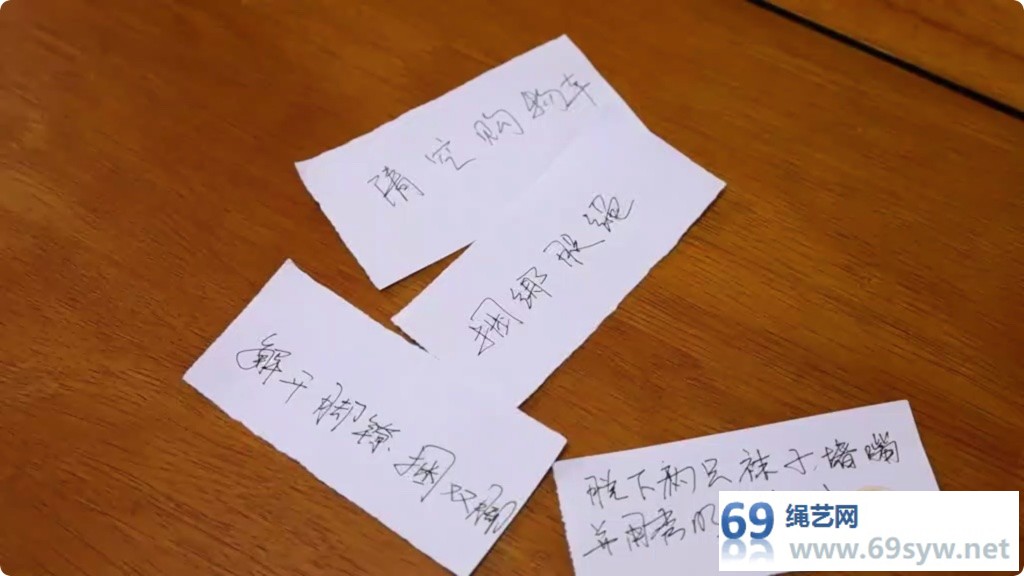 清空购物车
捆绑股绳
解下脚镣捆双脚
脱下两只袜子堵嘴
并用
69 绳艺网
www.69syw.net